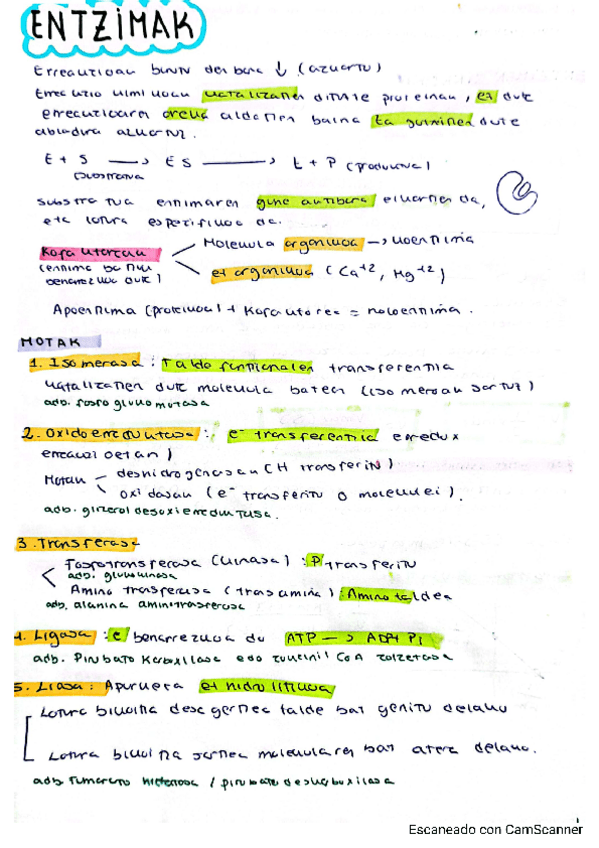 ENTZIMAK
Erreakzioak burutu der bere ↓ (azkartu)
Erreakzio kimikoak katalizatzen dituzte proteinak, ez dute
erreakzioaren oreka aldatzen baina Ea gutxitzen dute
abiadura azkartuz.
E + S → ES → E + P (produktua)
(substratua
substratua entzimaren gune aktiboan elkartzen da,
eta lotura espezifikoa da.
Kofaktoreak
(entzima batzuk
beharrezkoa dute)
Molekula organikoa → koentzima
ez organikoa (Ca+2, Mg+2)
Apoentzima (proteikoa) + Kofaktorea = holoentzima.
MOTAK
1. Isomerasa: Talde funtzionalen transferentzia
katalizatzen dute molekula batean (isomeroak sortuz)
adb. fosfoglukomutasa
2. Oxidoerreduktasa: e- transferentzia erredox
erreakzioetan)
Motak
deshidrogenasak (H transferitu)
oxidasak (e- transferitu O molekulei).
adb. glizerol desoxierreduktasa.
3. Transferasa
Fosfotransferasa (kinasa): P transferitu
adb. glukokinasa
Aminotransferasa (transamina): Amino taldea
adb, alanina aminotransferasa
4. Ligasa: e beharrezkoa du ATP → ADP + Pi
adb. Pirubato Karboxilasa edo zukzinil CoA
5. Liasa: Apurketa ez hidrolitikoa
Lotura bikoitza desegernez talde bat gehitu delako
Lotura bikoitza sortnez molekularen bat atera delako.
adb fumarato hidratasa / pirubato deskarboxilasa
Escaneado con CamScanner